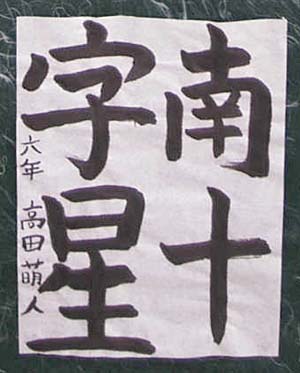 南十
字星
六年 高田萌人